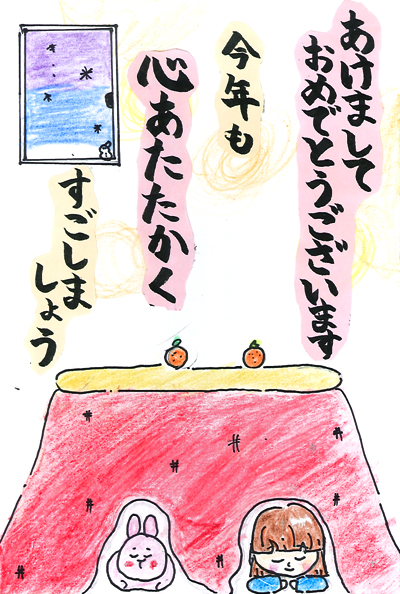 あけまして
おめでとうございます
今年も
心あたたかく
すごしま
しょう